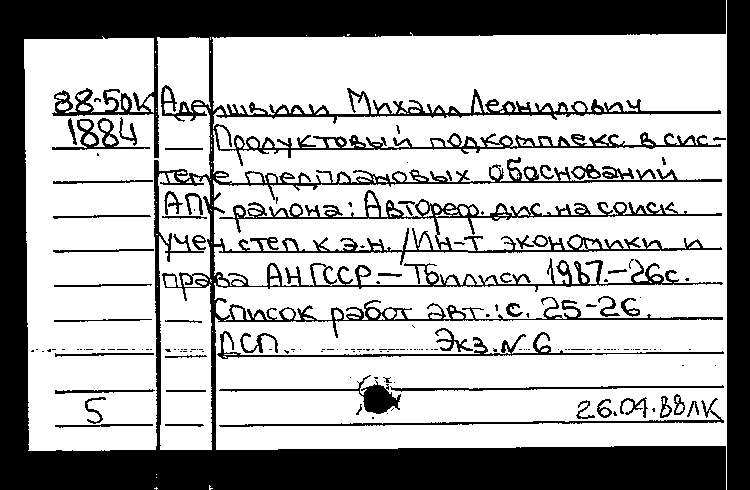 88-50К Адеишвили, Михаил Леонидович
1884 Продуктовый подкомплекс в сис-
теме предплановых обоснований
АПК района: Автореф. дис. на соиск.
учен. степ. к.э.н. /Ин-т экономики и
права АН ГССР.- Тбилиси, 1987.-26с.
Список работ авт.: с. 25-26.
ДСП. Экз. N 6.
5 26.04.88ЛК